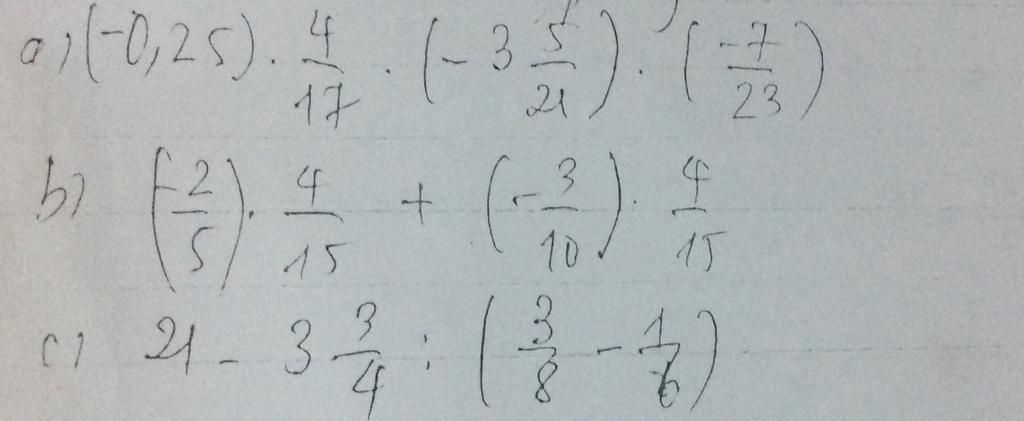 a) (-0,25) . 4/17 . (-3 5/21) . (-7/23)
b) (-2/5) . 4/15 + (-3/10) . 4/15
c) 21 - 3 3/4 : (3/8 - 1/6)